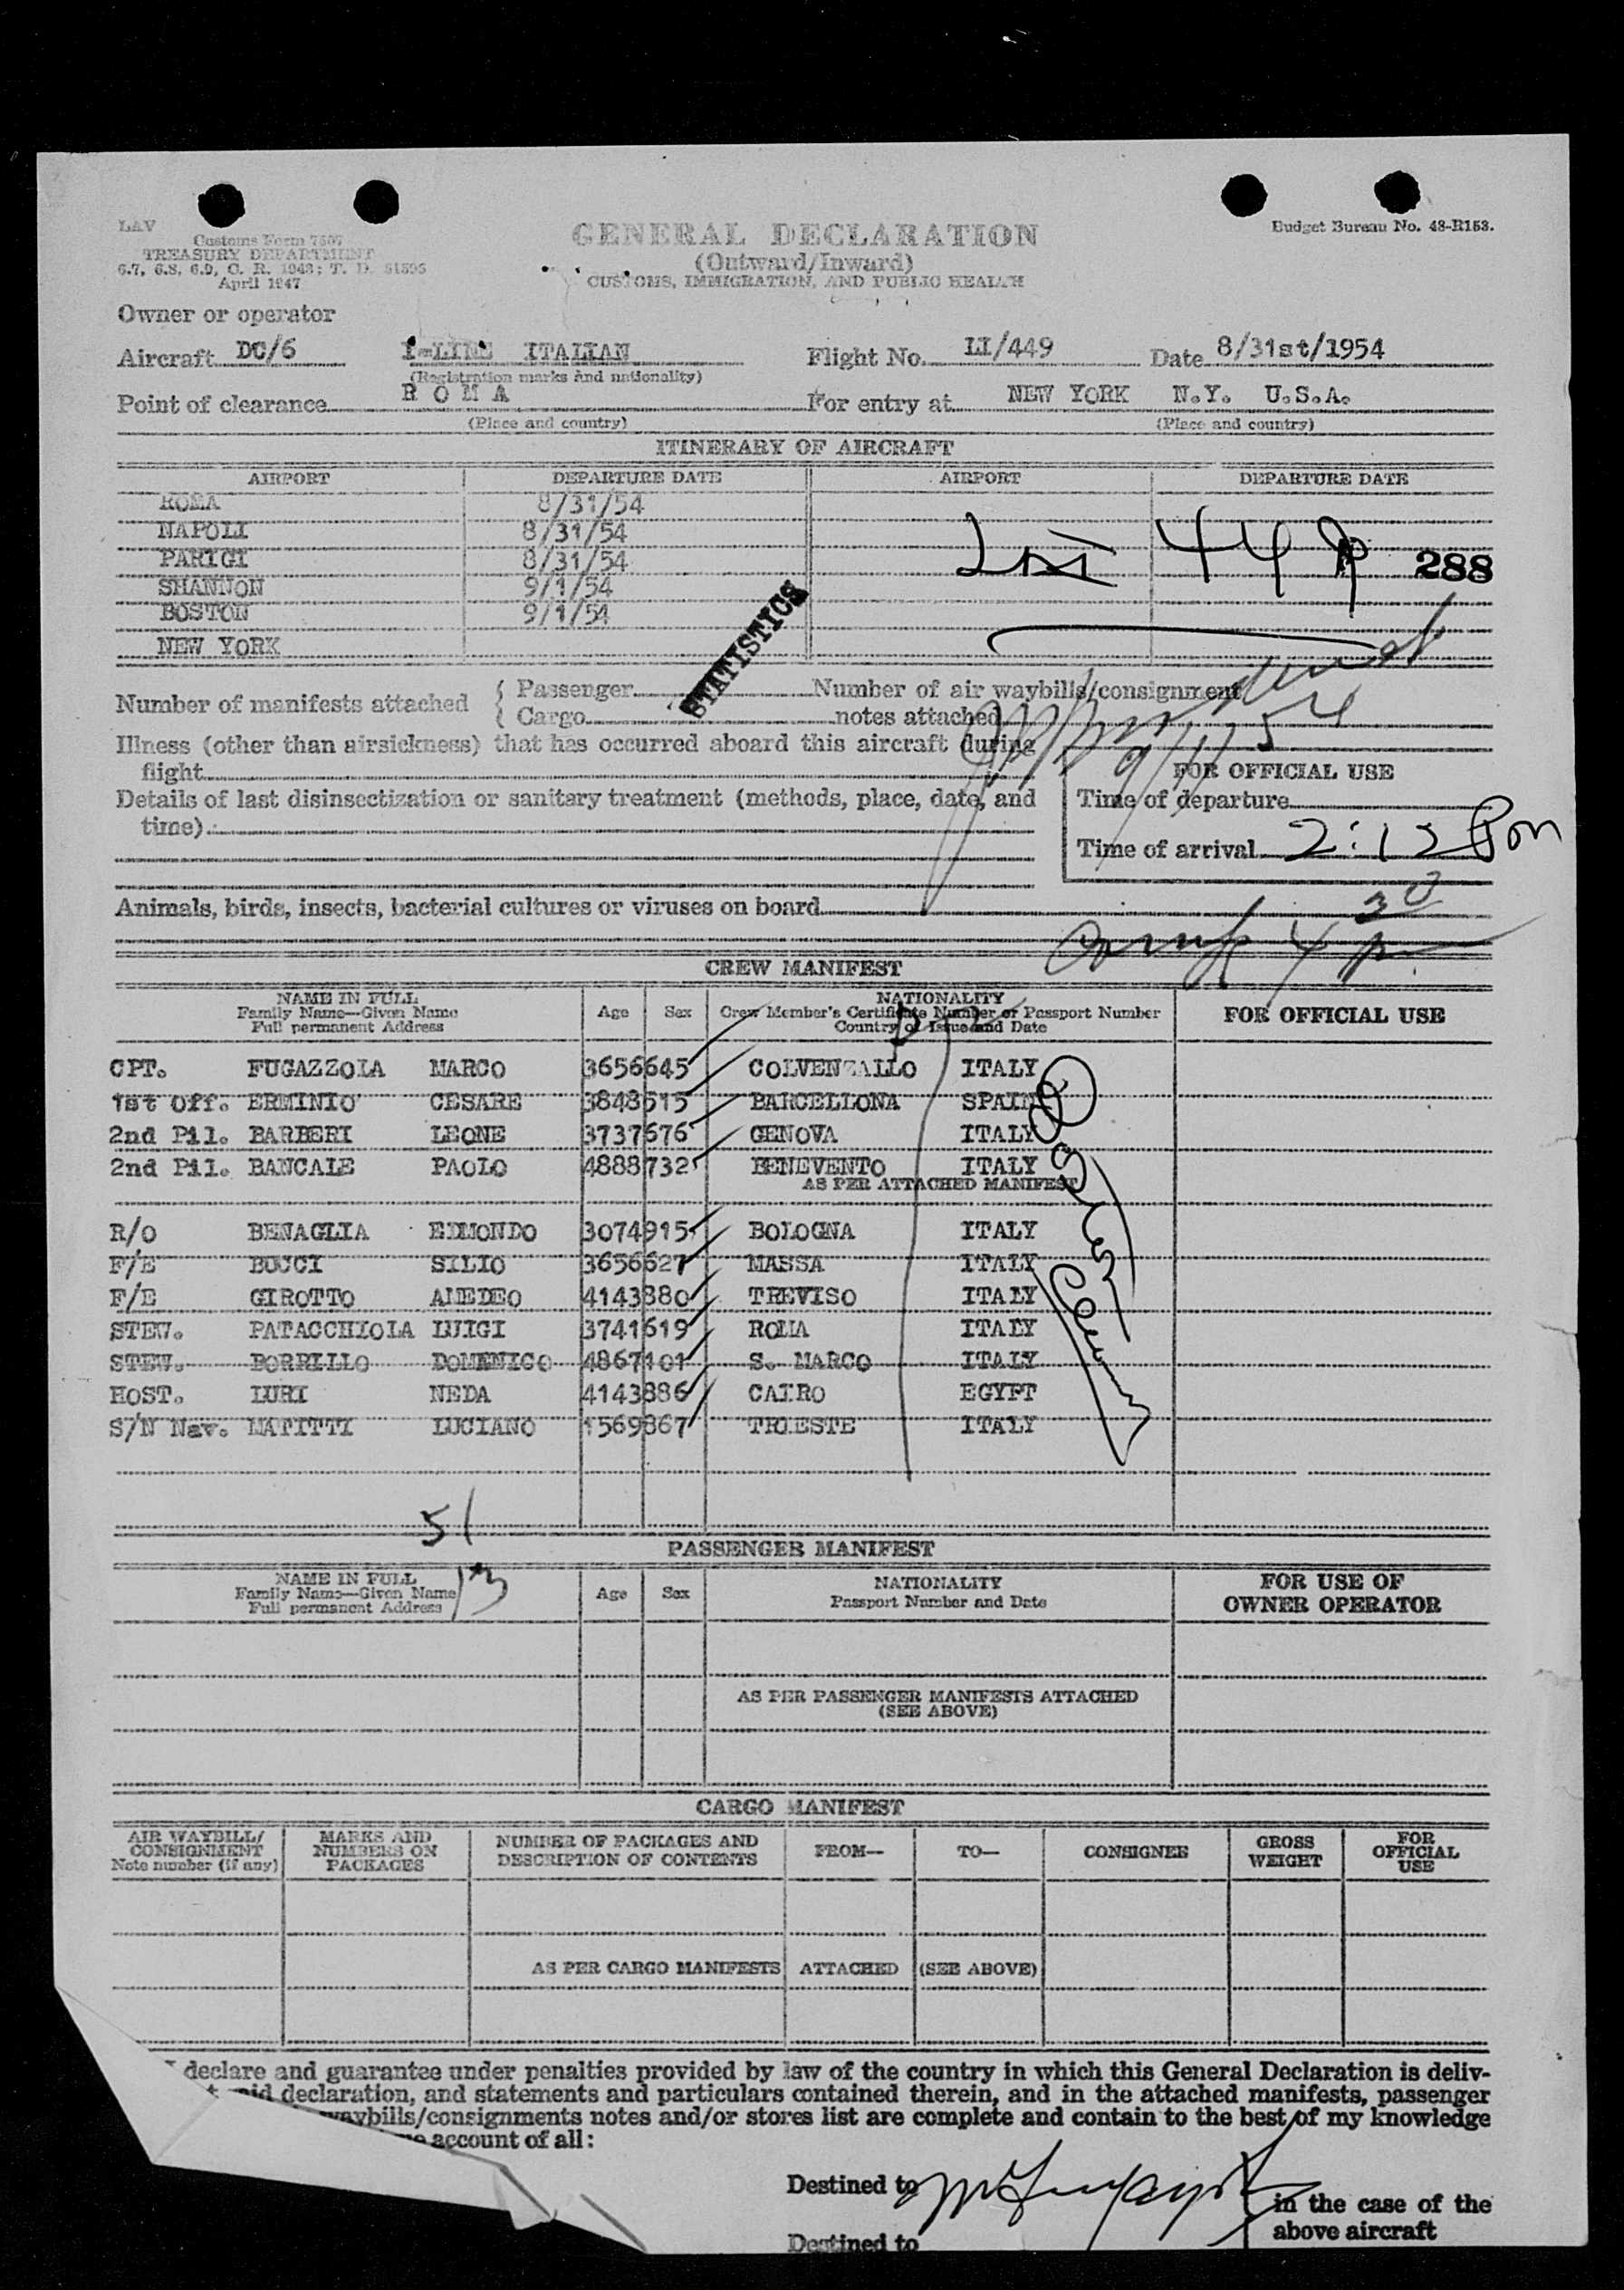 LAV
Customs Form 7507
TREASURY DEPARTMENT
6.7, 6.8, 6.9, C. R. 1943; T. D. 51595
April 1947
GENERAL DECLARATION
(Outward/Inward)
CUSTOMS, IMMIGRATION, AND PUBLIC HEALTH
Budget Bureau No. 48-R153.
Owner or operator
Aircraft DC/6 I-LINE ITALIAN Flight No. LI/449 Date 8/31st/1954
(Registration marks and nationality)
Point of clearance R O M A For entry at NEW YORK N.Y. U.S.A.
(Place and country) (Place and country)
ITINERARY OF AIRCRAFT
AIRPORT DEPARTURE DATE AIRPORT DEPARTURE DATE
ROMA 8/31/54
NAPOLI 8/31/54
PARIGI 8/31/54 288
SHANNON 9/1/54
BOSTON 9/1/54
NEW YORK
STATISTICS
Number of manifests attached { Passenger Number of air waybills/consignment
{ Cargo notes attached
9/1/54
Illness (other than airsickness) that has occurred aboard this aircraft during
flight
FOR OFFICIAL USE
Details of last disinsectization or sanitary treatment (methods, place, date, and
time)
Time of departure
Time of arrival 2:12 Pm
Animals, birds, insects, bacterial cultures or viruses on board
CREW MANIFEST
NAME IN FULL
Family Name—Given Name
Full permanent Address
Age Sex
NATIONALITY
Crew Member's Certificate Number or Passport Number
Country of Issue and Date
FOR OFFICIAL USE
CPT. FUGAZZOLA MARCO 3656645 COLVENZALLO ITALY
1st Off. ERMINIO CESARE 3848515 BARCELLONA SPAIN
2nd Pil. BARBERI LEONE 3737676 GENOVA ITALY
2nd Pil. BANCALE PAOLO 4888732 BENEVENTO ITALY
AS PER ATTACHED MANIFEST
R/O BENAGLIA EDMONDO 3074915 BOLOGNA ITALY
F/E BUCCI SILIO 3656627 MASSA ITALY
F/E GIROTTO AMEDEO 4143880 TREVISO ITALY
STEW. PATACCHIOLA LUIGI 3741619 ROMA ITALY
STEW. BORRILLO DOMENICO 4867101 S. MARCO ITALY
HOST. LURI NEDA 4143886 CAIRO EGYPT
S/N Nav. MATITTI LUCIANO 1569867 TRIESTE ITALY
51
PASSENGER MANIFEST
13
NAME IN FULL
Family Name—Given Name
Full permanent Address
Age Sex
NATIONALITY
Passport Number and Date
FOR USE OF
OWNER OPERATOR
AS PER PASSENGER MANIFESTS ATTACHED
(SEE ABOVE)
CARGO MANIFEST
AIR WAYBILL/
CONSIGNMENT
Note number (if any)
MARKS AND
NUMBERS ON
PACKAGES
NUMBER OF PACKAGES AND
DESCRIPTION OF CONTENTS
FROM—
TO—
CONSIGNEE
GROSS
WEIGHT
FOR
OFFICIAL
USE
AS PER CARGO MANIFESTS ATTACHED (SEE ABOVE)
declare and guarantee under penalties provided by law of the country in which this General Declaration is deliv-
declaration, and statements and particulars contained therein, and in the attached manifests, passenger
waybills/consignments notes and/or stores list are complete and contain to the best of my knowledge
account of all:
Destined to
in the case of the
above aircraft
Destined to